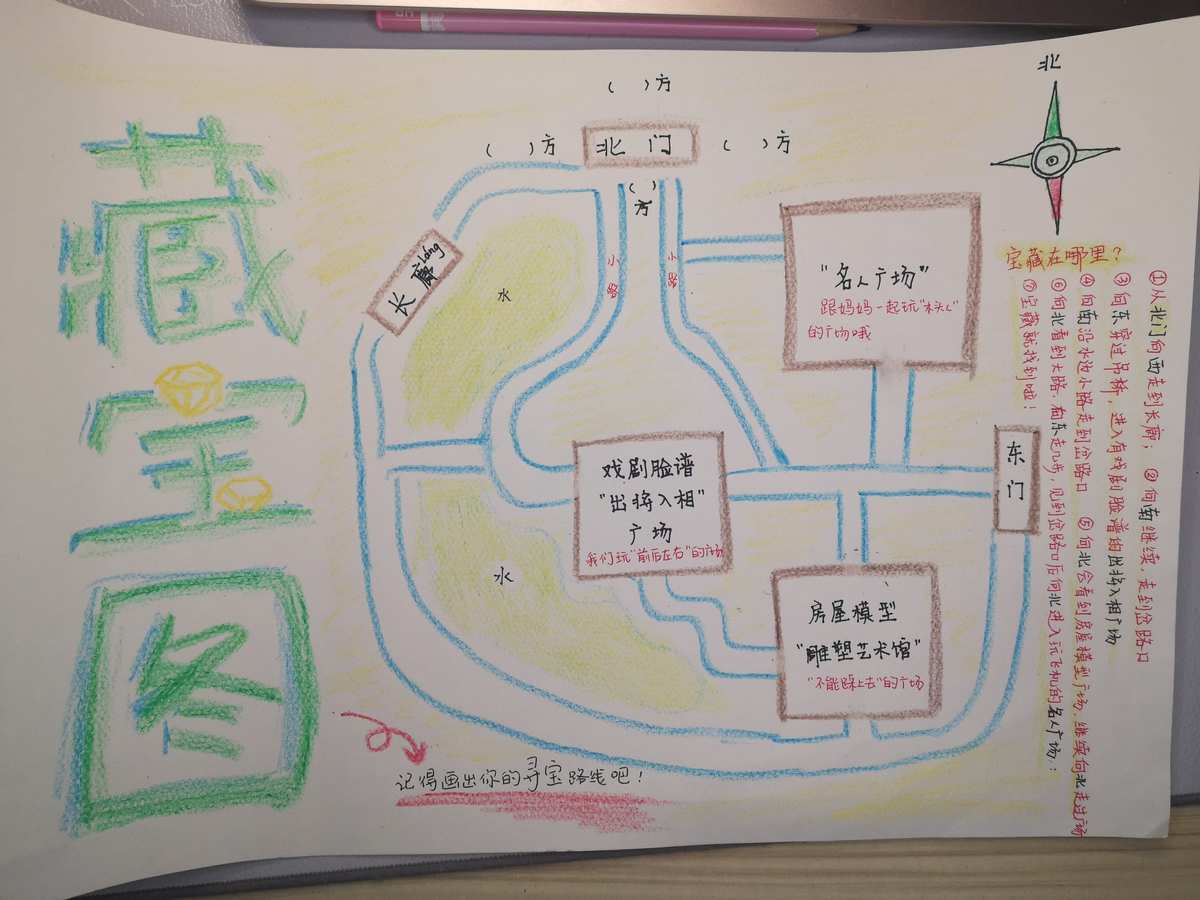 藏宝图
北
( )方
( )方
北门
( )方
( )方
长廊
láng
水
小路
小路
"名人广场"
跟妈妈一起玩"木头人"
的广场哦
戏剧脸谱
"出将入相"
广场
我们玩"前后左右"的广场
东门
水
房屋模型
"雕塑艺术馆"
"不能踩上去"的广场
记得画出你的寻宝路线吧!
宝藏在哪里?
①从北门向西走到长廊; ②向南继续,走到岔路口
③向东穿过吊桥,进入有戏剧脸谱的出将入相广场
④向南沿水边小路走到岔路口 ⑤向北会看到房屋模型广场,继续向北走过广场
⑥向北看到大路,向东走几步,见到岔路口后向北进入玩飞机的名人广场;
⑦宝藏就找到啦!